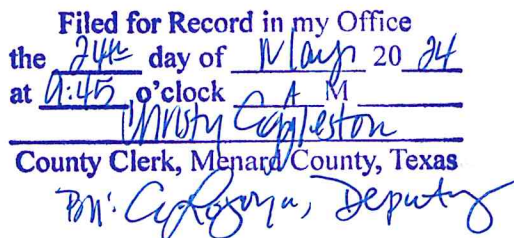 Filed for Record in my Office
the 24th day of May 20 24
at 9:45 o'clock A M
Christy Eggleston
County Clerk, Menard County, Texas
By: Deputy